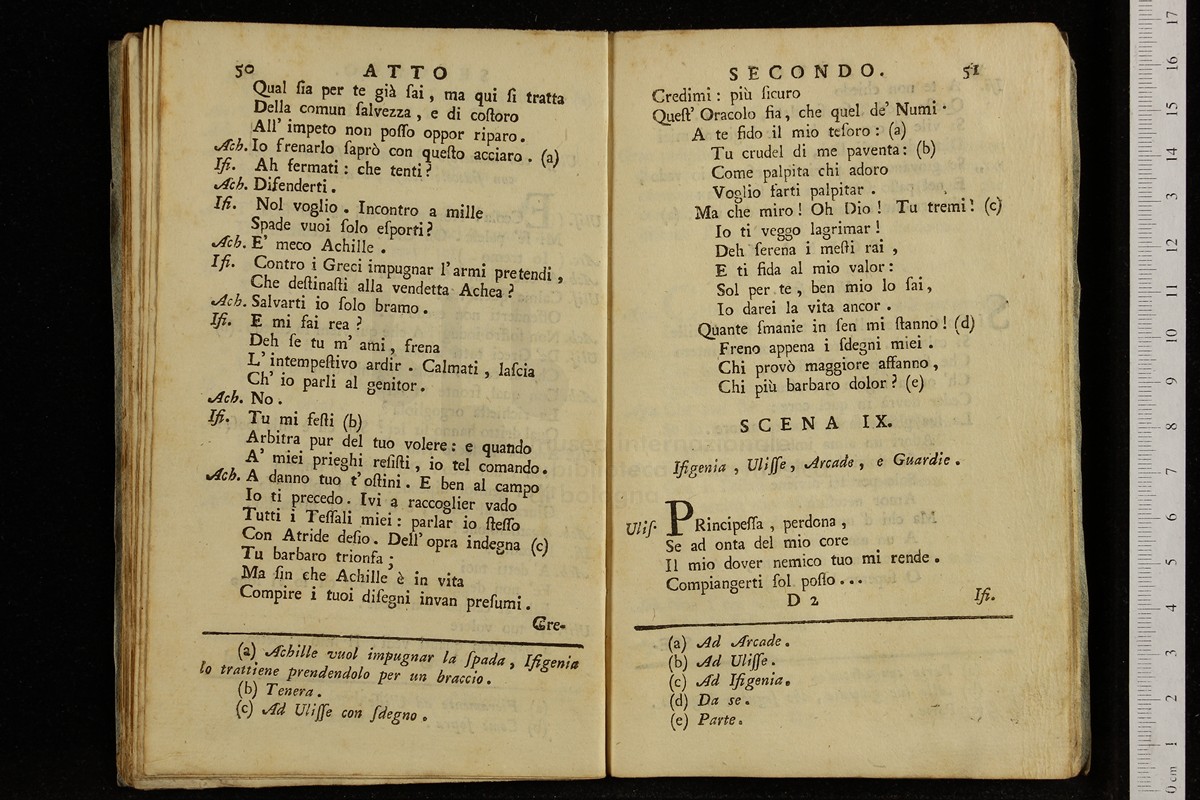 50 ATTO
Qual ſia per te già ſai, ma qui ſi tratta
Della comun ſalvezza, e di coſtoro
All' impeto non poſſo oppor riparo.
Ach. Io frenarlo ſaprò con queſto acciaro. (a)
Ifi. Ah fermati: che tenti?
Ach. Difenderti.
Ifi. Nol voglio. Incontro a mille
Spade vuoi ſolo eſporti?
Ach. E' meco Achille.
Ifi. Contro i Greci impugnar l'armi pretendi,
Che deſtinaſti alla vendetta Achea?
Ach. Salvarti io ſolo bramo.
Ifi. E mi fai rea?
Deh ſe tu m' ami, frena
L' intempeſtivo ardir. Calmati, laſcia
Ch' io parli al genitor.
Ach. No.
Ifi. Tu mi feſti (b)
Arbitra pur del tuo volere: e quando
A' miei prieghi reſiſti, io tel comando.
Ach. A danno tuo t'oſtini. E ben al campo
Io ti precedo. Ivi a raccoglier vado
Tutti i Teſſali miei: parlar io ſteſſo
Con Atride deſio. Dell' opra indegna (c)
Tu barbaro trionfa;
Ma fin che Achille è in vita
Compire i tuoi diſegni invan preſumi.
Cre-
(a) Achille vuol impugnar la ſpada, Ifigenia
lo trattiene prendendolo per un braccio.
(b) Tenera.
(c) Ad Uliſſe con ſdegno.
SECONDO. 51
Credimi: più ſicuro
Queſt' Oracolo fia, che quel de' Numi.
A te fido il mio teſoro: (a)
Tu crudel di me paventa: (b)
Come palpita chi adoro
Voglio farti palpitar.
Ma che miro! Oh Dio! Tu tremi! (c)
Io ti veggo lagrimar!
Deh ſerena i meſti rai,
E ti fida al mio valor:
Sol per te, ben mio lo ſai,
Io darei la vita ancor.
Quante ſmanie in ſen mi ſtanno! (d)
Freno appena i ſdegni miei.
Chi provò maggiore affanno,
Chi più barbaro dolor? (e)
SCENA IX.
Ifigenia, Uliſſe, Arcade, e Guardie.
Uliſ. PRincipeſſa, perdona,
Se ad onta del mio core
Il mio dover nemico tuo mi rende.
Compiangerti ſol poſſo...
D 2 Ifi.
(a) Ad Arcade.
(b) Ad Uliſſe.
(c) Ad Ifigenia.
(d) Da se.
(e) Parte.
museo internazionale
biblioteca
di bologna
17
16
15
14
13
12
11
10
9
8
7
6
5
4
3
2
1
0 cm